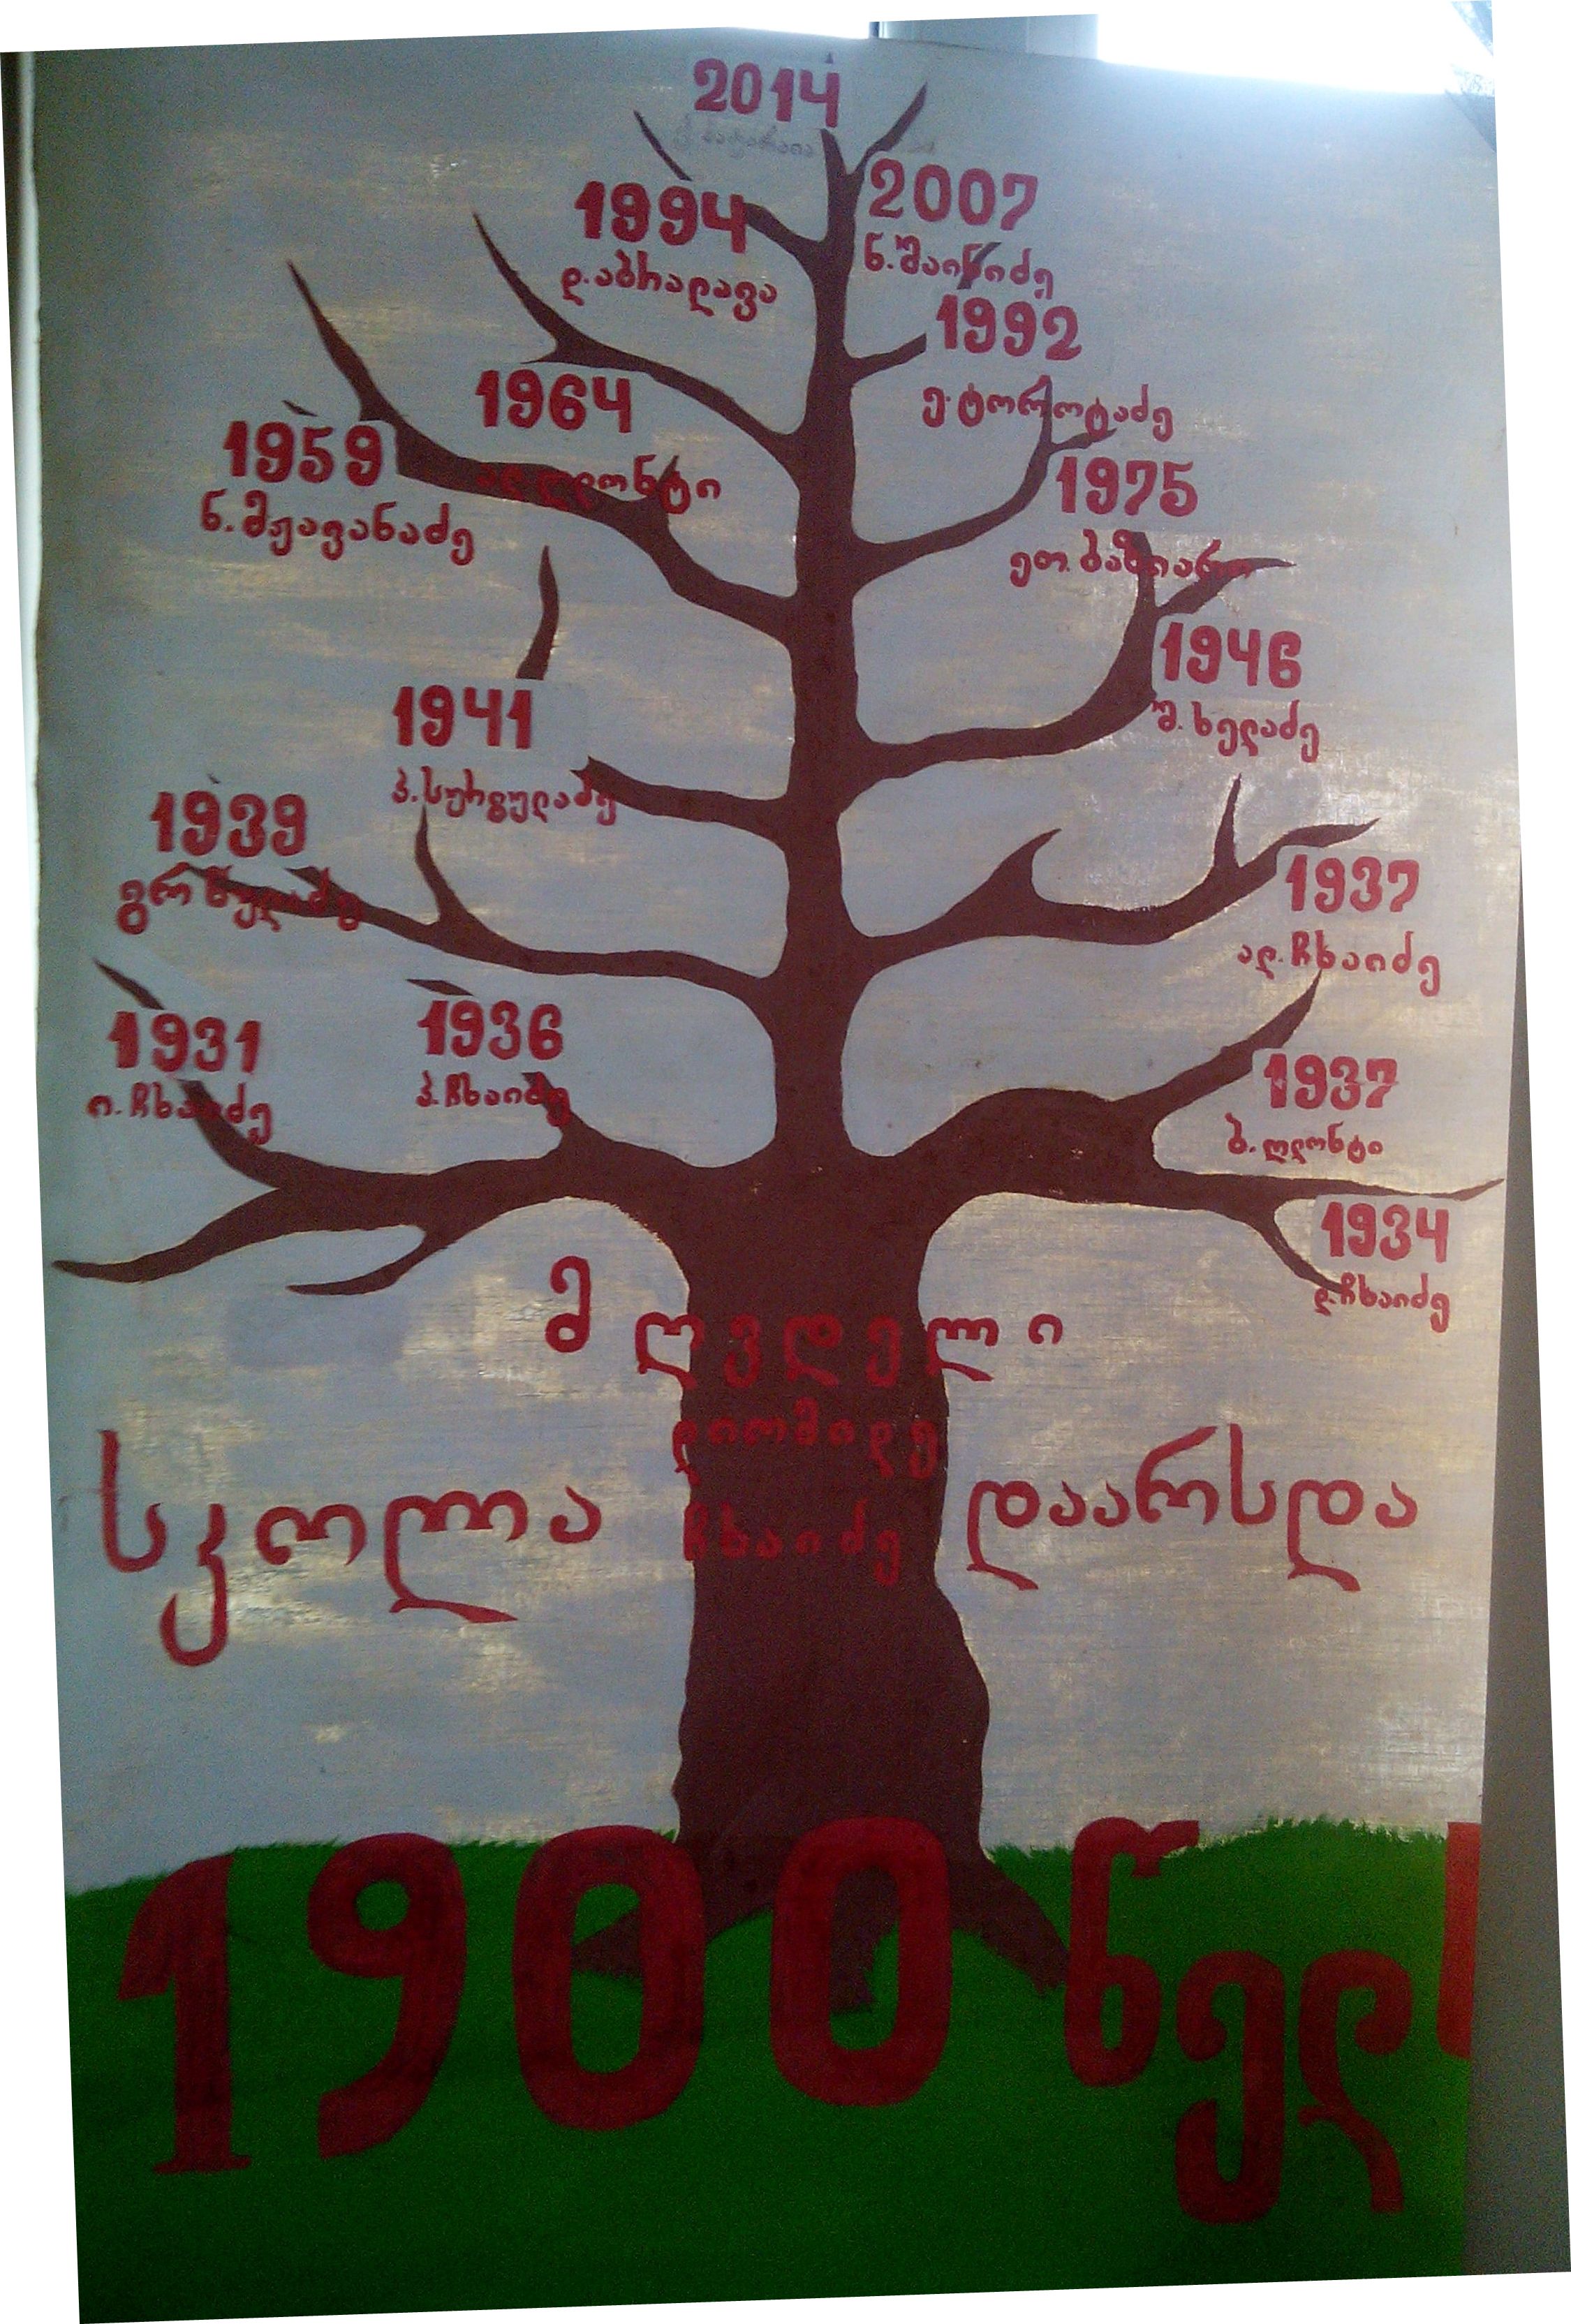 2014
1994
დ.აბრალავა
2007
ნ.შაინიძე
1992
ე.ტოროტაძე
1964
ალ.ღლონტი
1959
ნ.მჟავანაძე
1975
ეთ.
1946
შ.ხელაძე
1941
პ.სურგულაძე
1939
გრ
1937
ალ.ჩხაიძე
1931
ი.ჩხაიძე
1936
პ.ჩხაიძე
1937
ბ.ღლონტი
1934
დ.ჩხაიძე
მღვდელი
დიომიდე
ჩხაიძე
სკოლა დაარსდა
1900 წელს